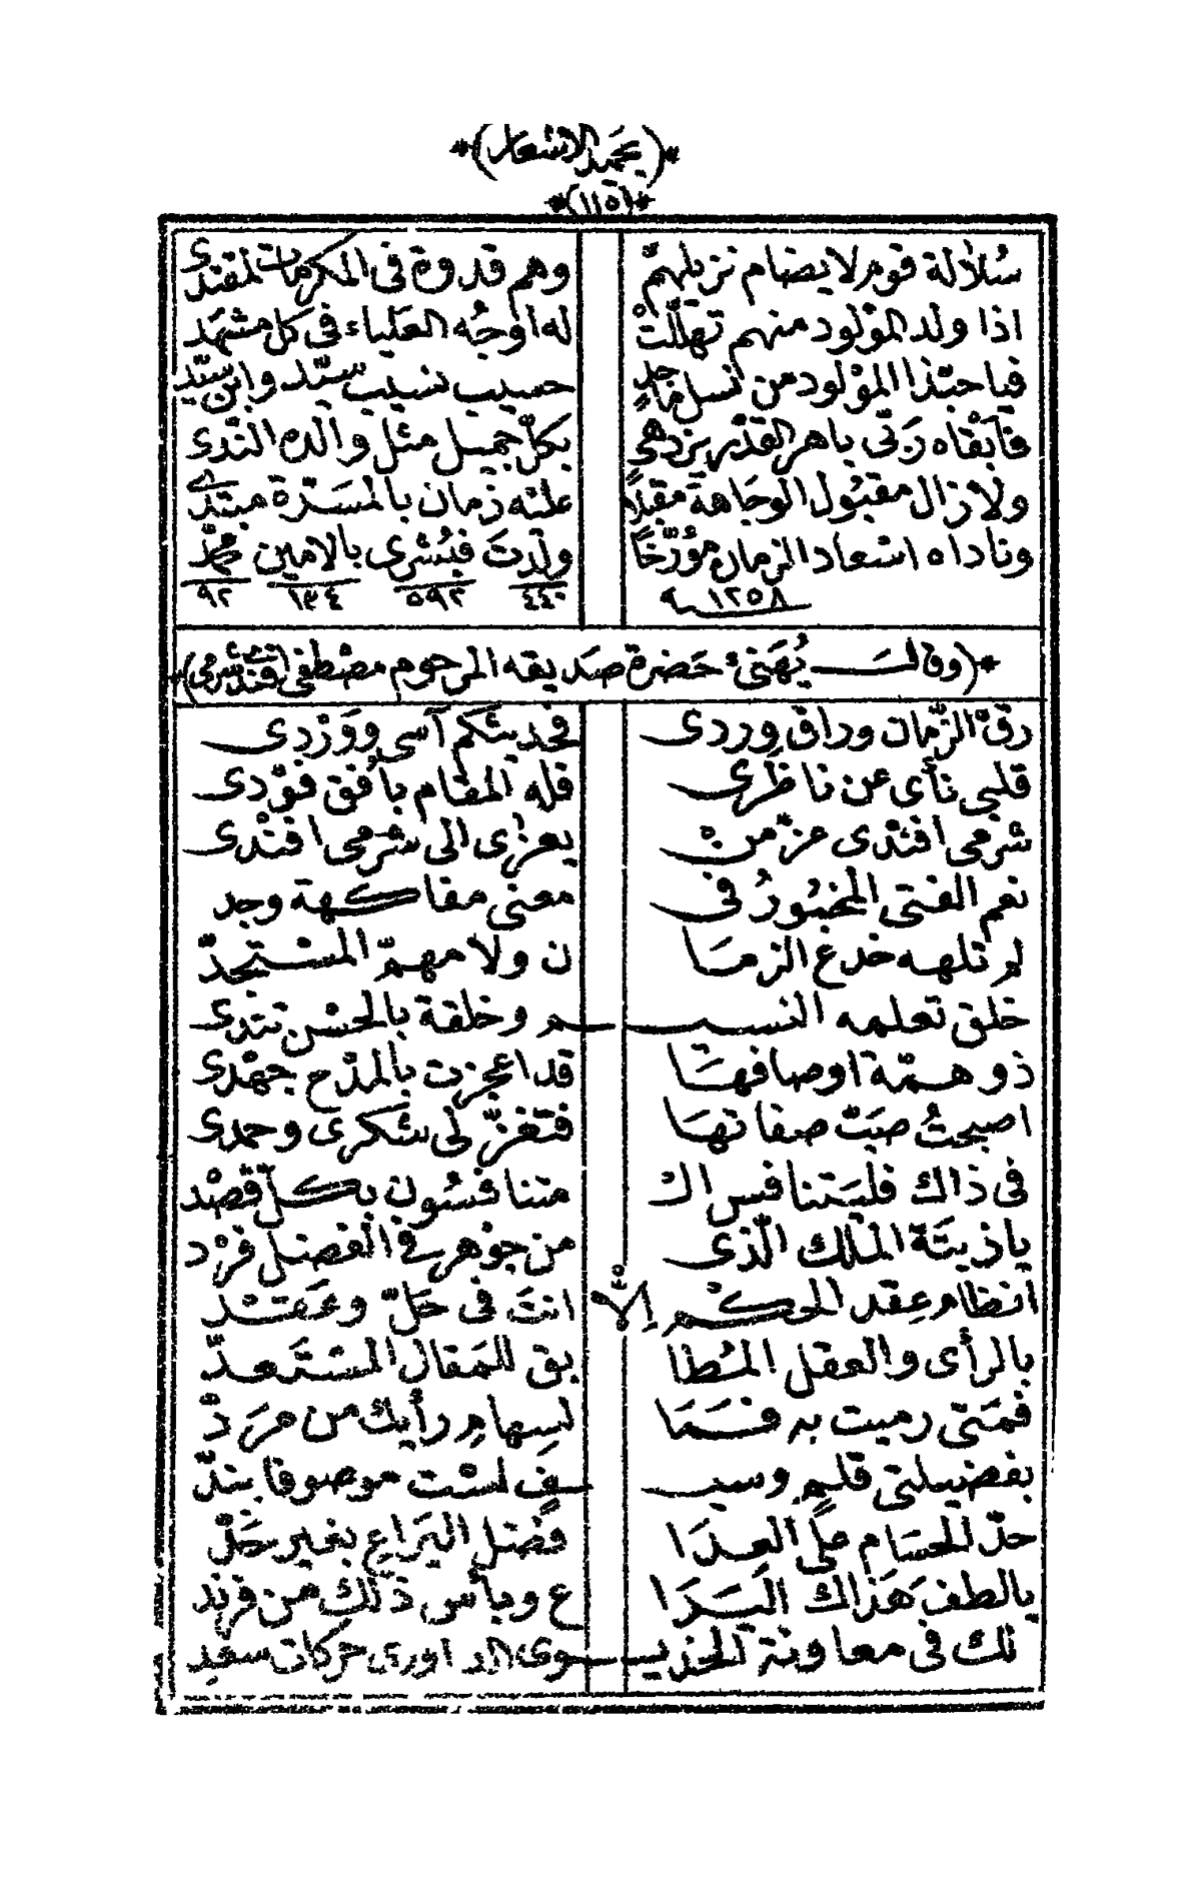 *(بحميد الاشعار)*
*(١١٥)*
سُلالة قوم لا يضام نزيلهمْ وهم قدوة فى المكرمات لمقتدى
اذا ولد المؤلود منهم تهلّلتْ له اوجُه العلياء فى كل مشهد
فيا حبّذا المؤلود من نسل ماجدٍ حسيب نسيب سيّد وابن سيّد
فابْقاه ربّى باهر القدْر يزدهى بكلّ جميل مثل والده الندى
ولا زال مقبُول الوجاهة مقبلاً عليْه زمان بالمسَرّة مبتدى
وناداه اسْعاد الزمان مؤرّخًا ولدتَ فبُشرى بالامين محمّد
١٢٥٨ سنة ٤٤٠ ٥٩٢ ١٣٤ ٩٢
*(وقالَ يُهَنئ حَضرة صَديقه المرحوم مصْطفى افندى شرمى)*
رقّ الزّمان وراق وردى فحديثكم آسى ووَرْدِى
قلبى نأى عن ناظرى فله المقام بافُق فوْدى
شرْمى افنْدى عزّ من يعزٰى الى شرْمى افنْدى
نعم الفتى المخبُورُ فى معنى مفاكهة وجد
لم تلهه خدع الزمَا ن ولا مهمّ المسْتجدّ
خلق تعلمه النسيـ ـم وخلقة بالحسْن تبتدى
ذو همّة اوصافهَا قد اعجزت بالمدْح جهْدى
اصبحتُ صَبّ صفاتهَا فتغزّلى شكرى وحمدى
فى ذاك فليَتنافس الـ متنافسُون بكلّ قصْد
ياذيتَة الملك الّذى من جوْهر فى الفضل فرْد
انظام عِقد الحكْم اِلاّ انتَ فى حَلّ وعَقْد
بالرأى والعقل المُطا بق للمقال المسْتَعدّ
فمَتى رميت به فمَا لسِهامِ رأيك من مَردّ
بفضيلتى قلمٍ وسيـ ـفٍ لسْت موصوفا بندّ
حدّ الحسَام على العدَا فضل اليَراعِ بغير حَدّ
بالطف هَذاك اليَرَا ع وبأس ذلك من فرند
لك فى معاونة الخديـ ـوى الداورى حركات سعْدِ